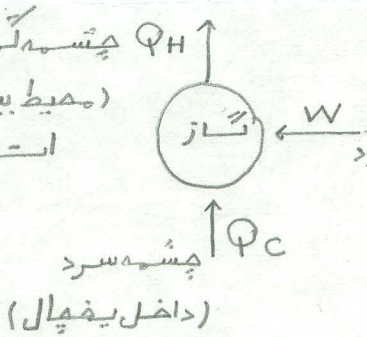 چشمه گر Q_H
(محیط بی
گاز
W
Q_C
چشمه سرد
(داخل یخچال)